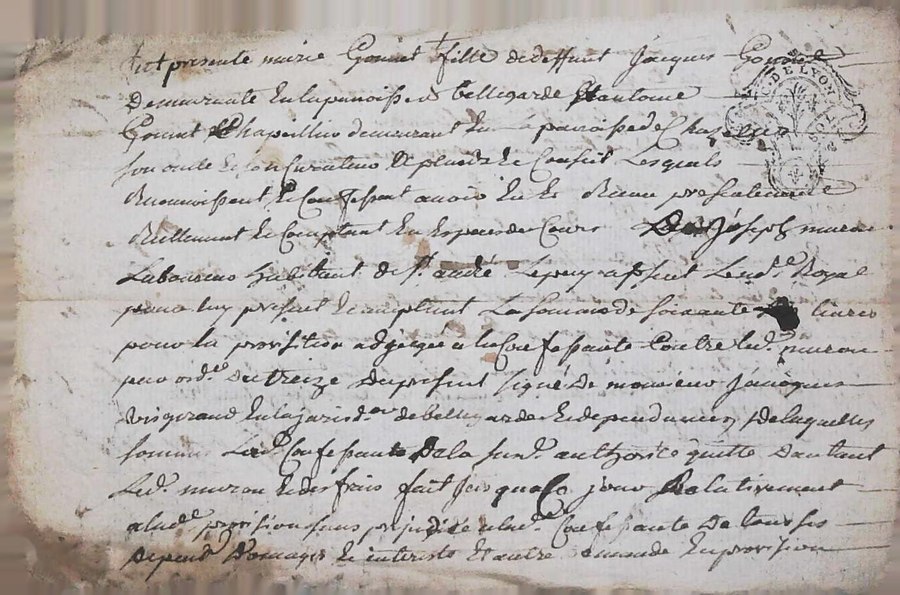 fut presente marie Gonnet fille de deffunt Jacques Gonnet
Demeurante En la parroisse de bellegarde Et antoine
Gonnet Chapellier demeurant En la parroisse de Chazelles
son oncle Et son Curateur Et Conseil Lesquels
Reconnoissent Et Confessent avoir Eu Et Receu presentement
Reellement Et Comptant En Especes de Cours De Joseph muron
Laboureur habitant de st andré Le puy assent Le nd.e Royal
pour luy present Et acceptant La somme de soixante livres
pour la provision adjugée a la Confessante Contre led. muron
par ord.e du treize du present signé De monsieur Jacques
En la jurisd.on de bellegarde Et dependances De laquelle
somme Lad. Confessante De la susd. authorité quitte D'autant
Led. muron Et des frais fait jusqua Ce jour Relativement
a lad.e provision sans prejudice a lad.e Confessante De tous ses
Depens Domages Et interests Et autre demande En provision
DE LYON